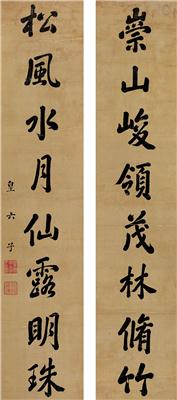 崇山峻領茂林脩竹
松風水月仙露明珠
皇六子